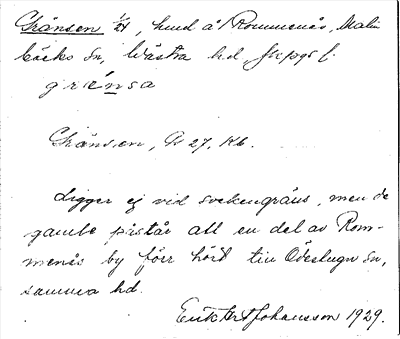 Gränsen 1/21, hmd å Rommenäs, Malm
bäcks sn, Västra hd, Jkpgs l.
grẹnsa
Gränsen, Gs 27, Kb.
Ligger ej vid sockengräns, men de
gamle påstår att en del av Rom-
menäs by förr hört till Ödestugu sn,
samma hd.
Erik Johansson 1929.